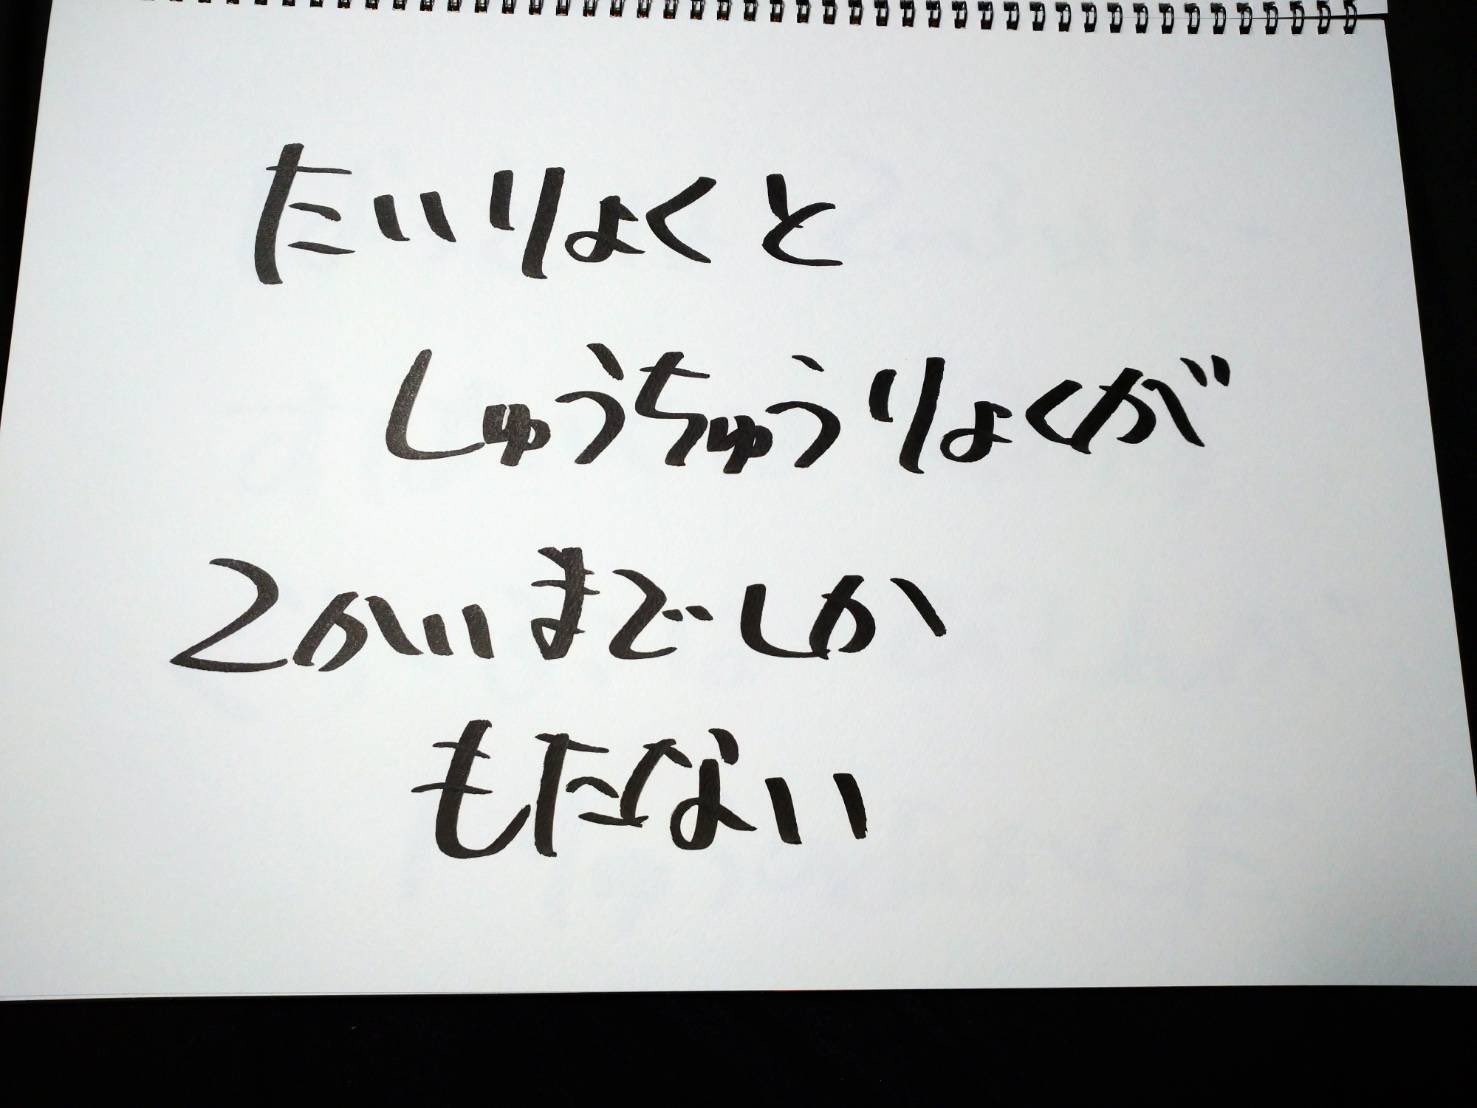 たいりょくと
しゅうちゅうりょくが
2かいまでしか
もたない